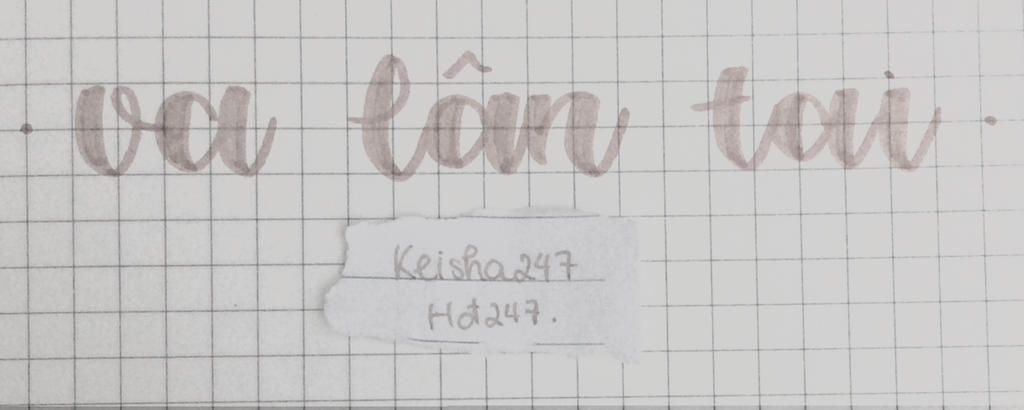 · va lân tai ·
Keisha247
Hot247.